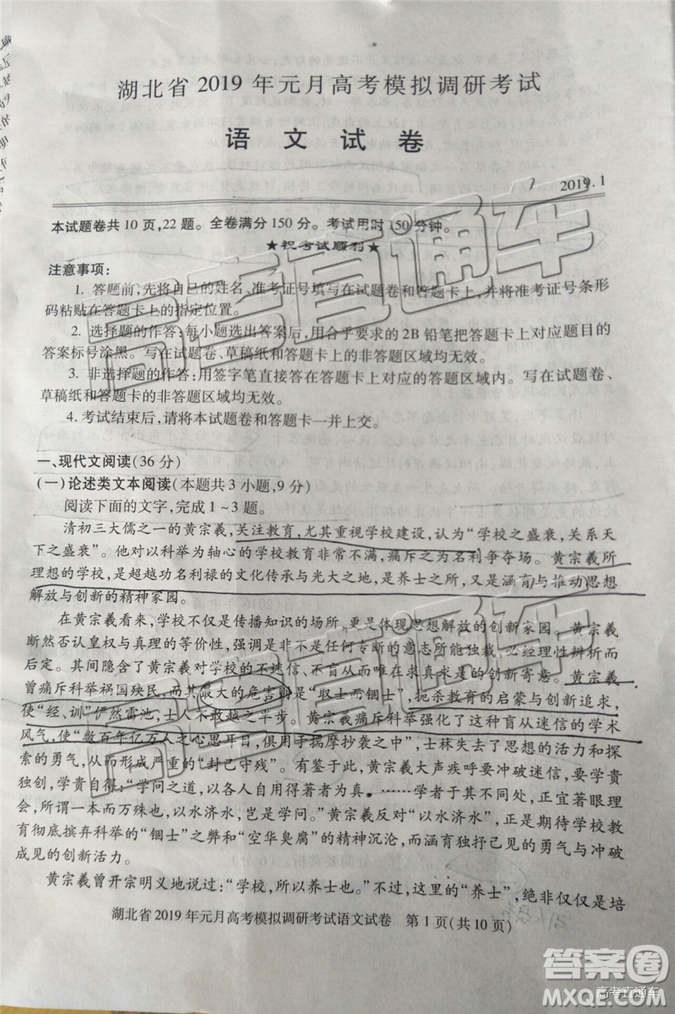 湖北省 2019 年元月高考模拟调研考试
语 文 试 卷
2019.1
本试题卷共 10 页,22 题。全卷满分 150 分。考试用时 150 分钟。
★祝考试顺利★
注意事项:
1. 答题前,先将自己的姓名、准考证号填写在试题卷和答题卡上,并将准考证号条形
码粘贴在答题卡上的指定位置。
2. 选择题的作答:每小题选出答案后,用合乎要求的 2B 铅笔把答题卡上对应题目的
答案标号涂黑。写在试题卷、草稿纸和答题卡上的非答题区域均无效。
3. 非选择题的作答:用签字笔直接答在答题卡上对应的答题区域内。写在试题卷、
草稿纸和答题卡上的非答题区域均无效。
4. 考试结束后,请将本试题卷和答题卡一并上交。
一、现代文阅读(36 分)
(一)论述类文本阅读(本题共 3 小题,9 分)
阅读下面的文字,完成 1~3 题。
清初三大儒之一的黄宗羲,关注教育,尤其重视学校建设,认为“学校之盛衰,关系天
下之盛衰”。他对以科举为轴心的学校教育非常不满,痛斥之为名利争夺场。黄宗羲所
理想的学校,是超越功名利禄的文化传承与光大之地,是养士之所,又是涵育与推动思想
解放与创新的精神家园。
在黄宗羲看来,学校不仅是传播知识的场所,更是体现思想解放的创新家园。黄宗羲
断然否认皇权与真理的等价性,强调是非不是任何专断的意志所能独裁,必经理性辨析而
后定。其间隐含了黄宗羲对学校的不迷信、不盲从而在求真求是的创新奇意。黄宗羲
曾痛斥科举祸国殃民,而其最大的危害则是“驱士而锢士”,扼杀教育的启蒙与创新追求,
使“经、训”俨然雷池,士人不敢越之半步。黄宗羲痛斥科举强化了这种盲从迷信的学术
风气,使“数百年亿万人之心思耳目,俱用于揣摩抄袭之中”,士林失去了思想的活力和探
索的勇气,从而导致严重的“封己守残”。有鉴于此,黄宗羲大声疾呼要冲破迷信,坚守学
独创,学贵自得:“学问之道,以各人自用得著者为真。……学者于其不同处,正宜著眼理
会,所谓一本而万殊也,以水济水,岂是学问!”黄宗羲反对“以水济水”,正是期待学校教
育彻底摈弃科举的“锢士”之弊和“空华臭腐”的精神沉沦,而涵育独抒己见的勇气与冲破
成见的创新活力。
黄宗羲曾开宗明义地说过:“学校,所以养士也。”不过,这里的“养士”,绝非仅仅是培
湖北省 2019 年元月高考模拟调研考试语文试卷 第 1 页(共 10 页)
高考直通车
答案圈
MXQE.COM
高考直通车